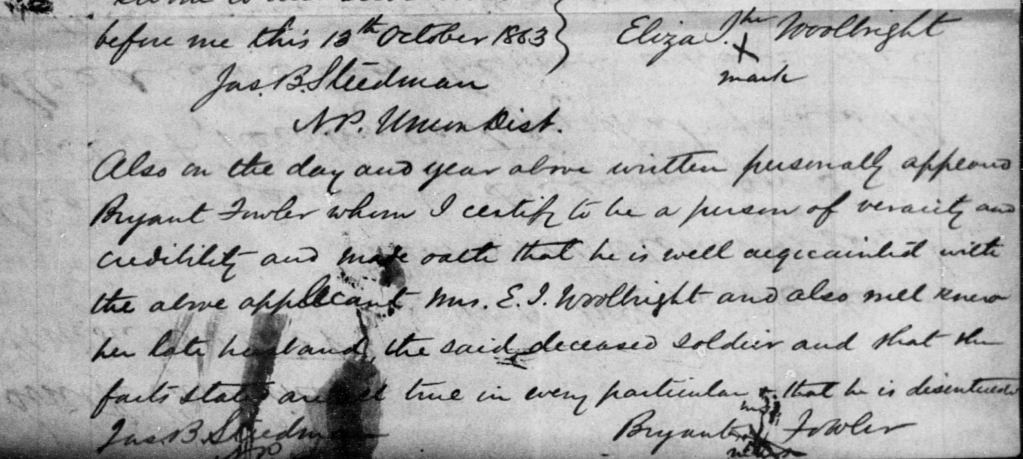 before me this 13th October 1863 } Eliza J. her X mark Woolbright
Jas. B. Steedman
N.P. Union Dist.
Also on the day and year above written personally appeared
Bryant Fowler whom I certify to be a person of veracity and
credibility and made oath that he is well acquainted with
the above applicant Mrs. E. J. Woolbright and also well knew
her late husband, the said deceased soldier and that the
facts stated are true in every particular & that he is disinterested
Jas B. Steedman Bryant X Fowler
NP